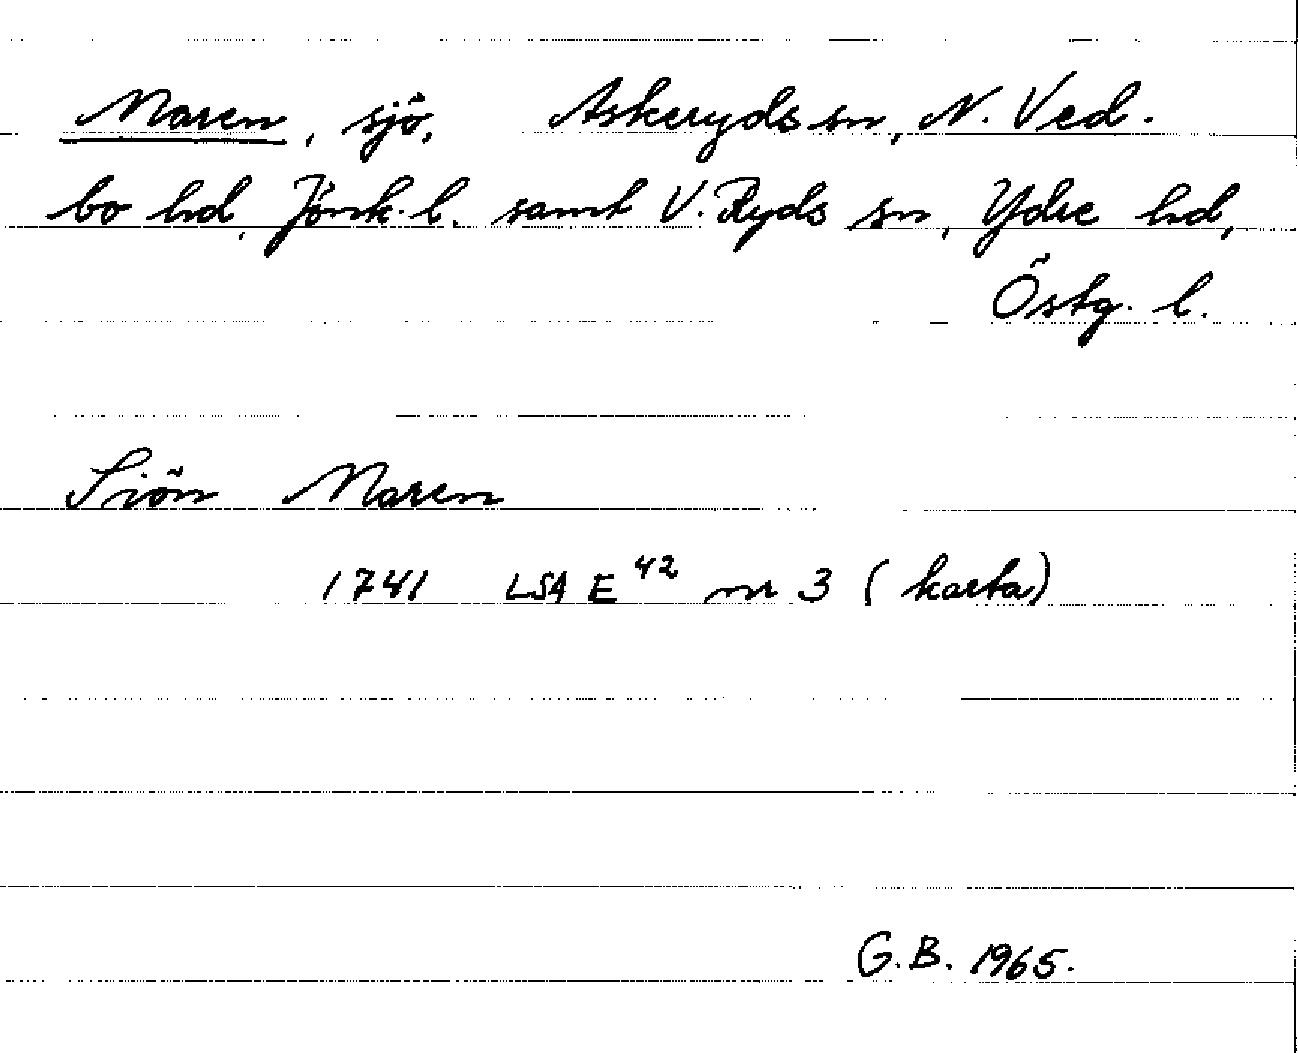 Maren, sjö, Askeryds sn, N. Ved.
bo hd, Jönk. l. samt V. Ryds sn, Ydre hd,
Östg. l.
Siön Maren
1741 LSA E 42 nr 3 (karta)
G.B. 1965.